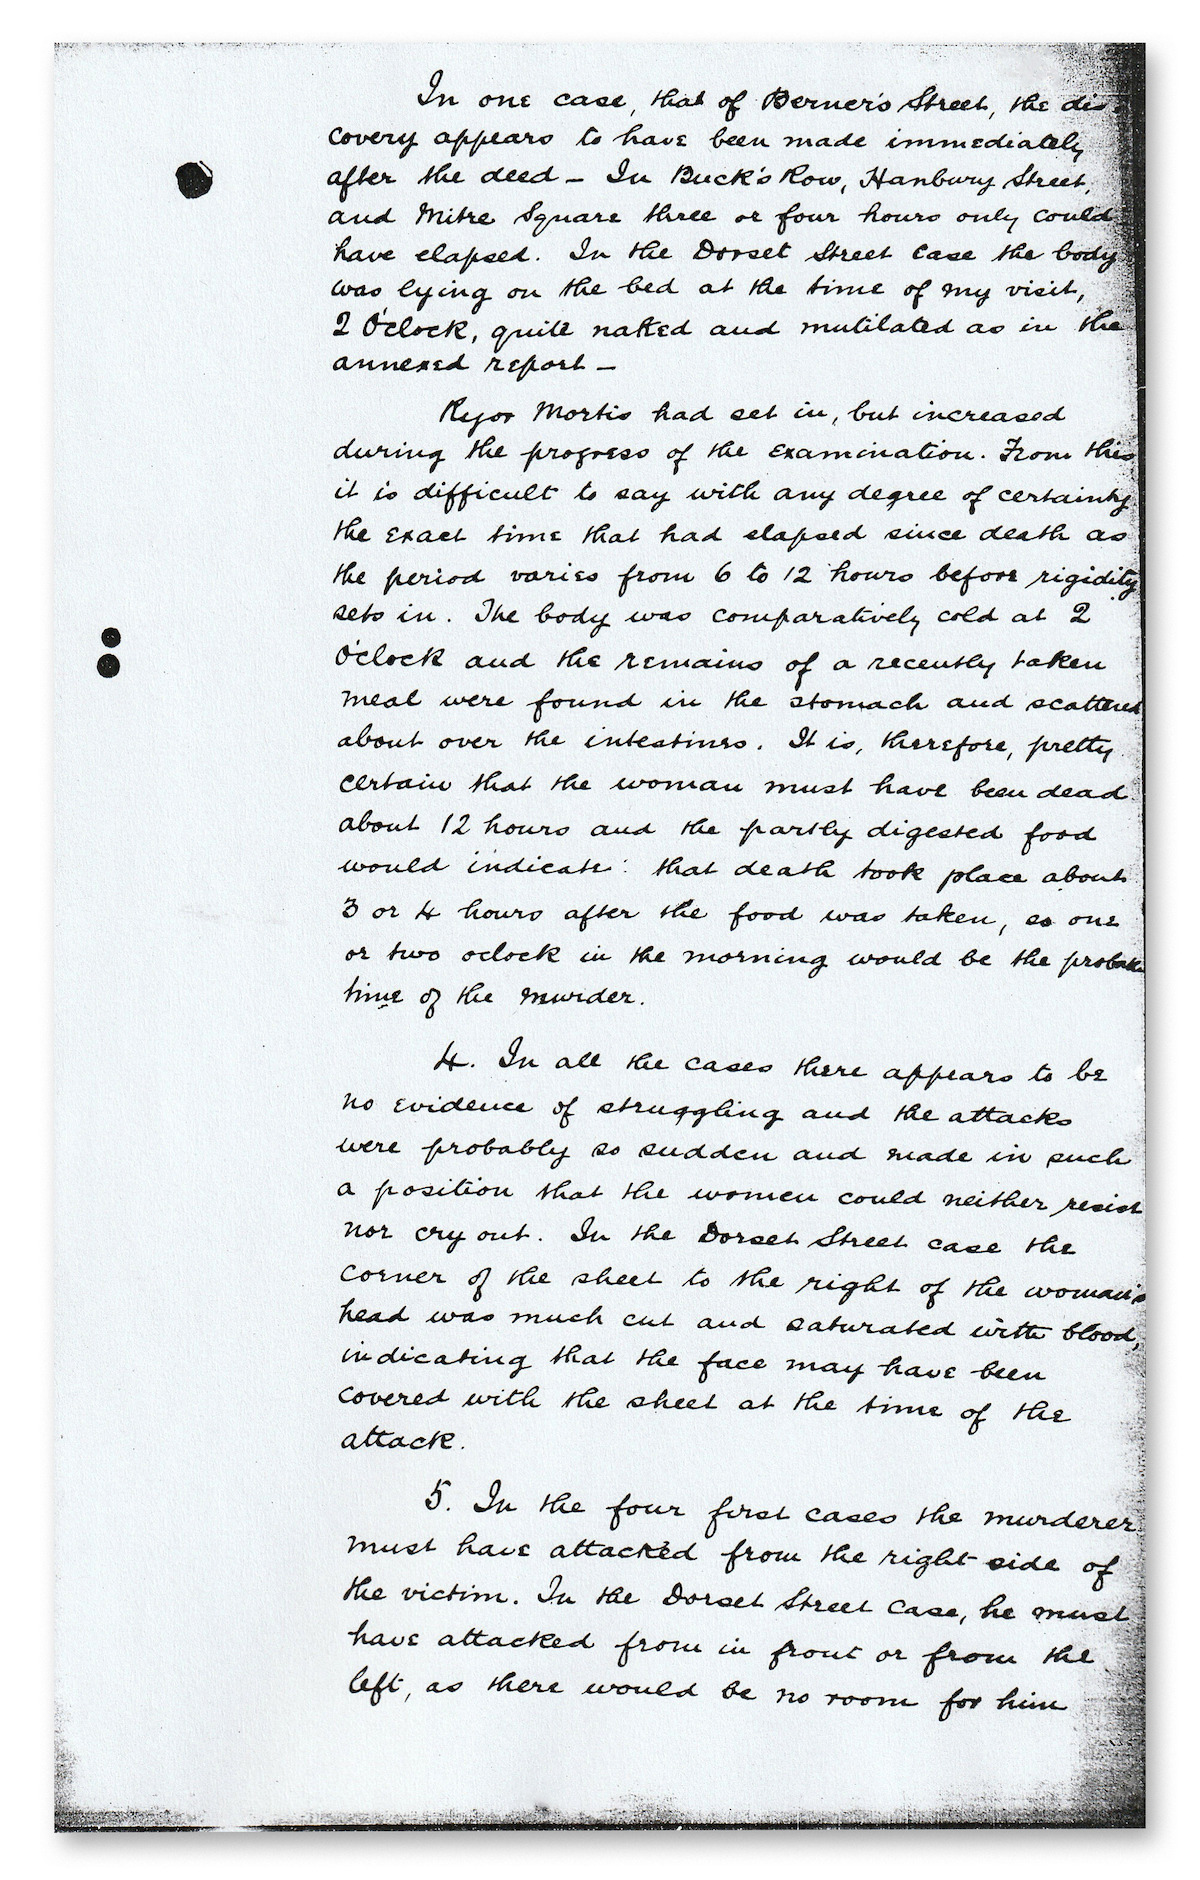 In one case, that of Berner's Street, the dis-
covery appears to have been made immediately
after the deed – In Buck's Row, Hanbury Street,
and Mitre Square three or four hours only could
have elapsed. In the Dorset Street case the body
was lying on the bed at the time of my visit,
2 O'clock, quite naked and mutilated as in the
annexed report –
Rigor Mortis had set in, but increased
during the progress of the examination. From this
it is difficult to say with any degree of certainty
the exact time that had elapsed since death as
the period varies from 6 to 12 hours before rigidity
sets in. The body was comparatively cold at 2
O'clock and the remains of a recently taken
meal were found in the stomach and scattered
about over the intestines. It is, therefore, pretty
certain that the woman must have been dead
about 12 hours and the partly digested food
would indicate: that death took place about
3 or 4 hours after the food was taken, so one
or two oclock in the morning would be the probable
time of the murder.
4. In all the cases there appears to be
no evidence of struggling and the attacks
were probably so sudden and made in such
a position that the women could neither resist
nor cry out. In the Dorset Street case the
corner of the sheet to the right of the woman's
head was much cut and saturated with blood,
indicating that the face may have been
covered with the sheet at the time of the
attack.
5. In the four first cases the murderer
must have attacked from the right side of
the victim. In the Dorset Street case, he must
have attacked from in front or from the
left, as there would be no room for him